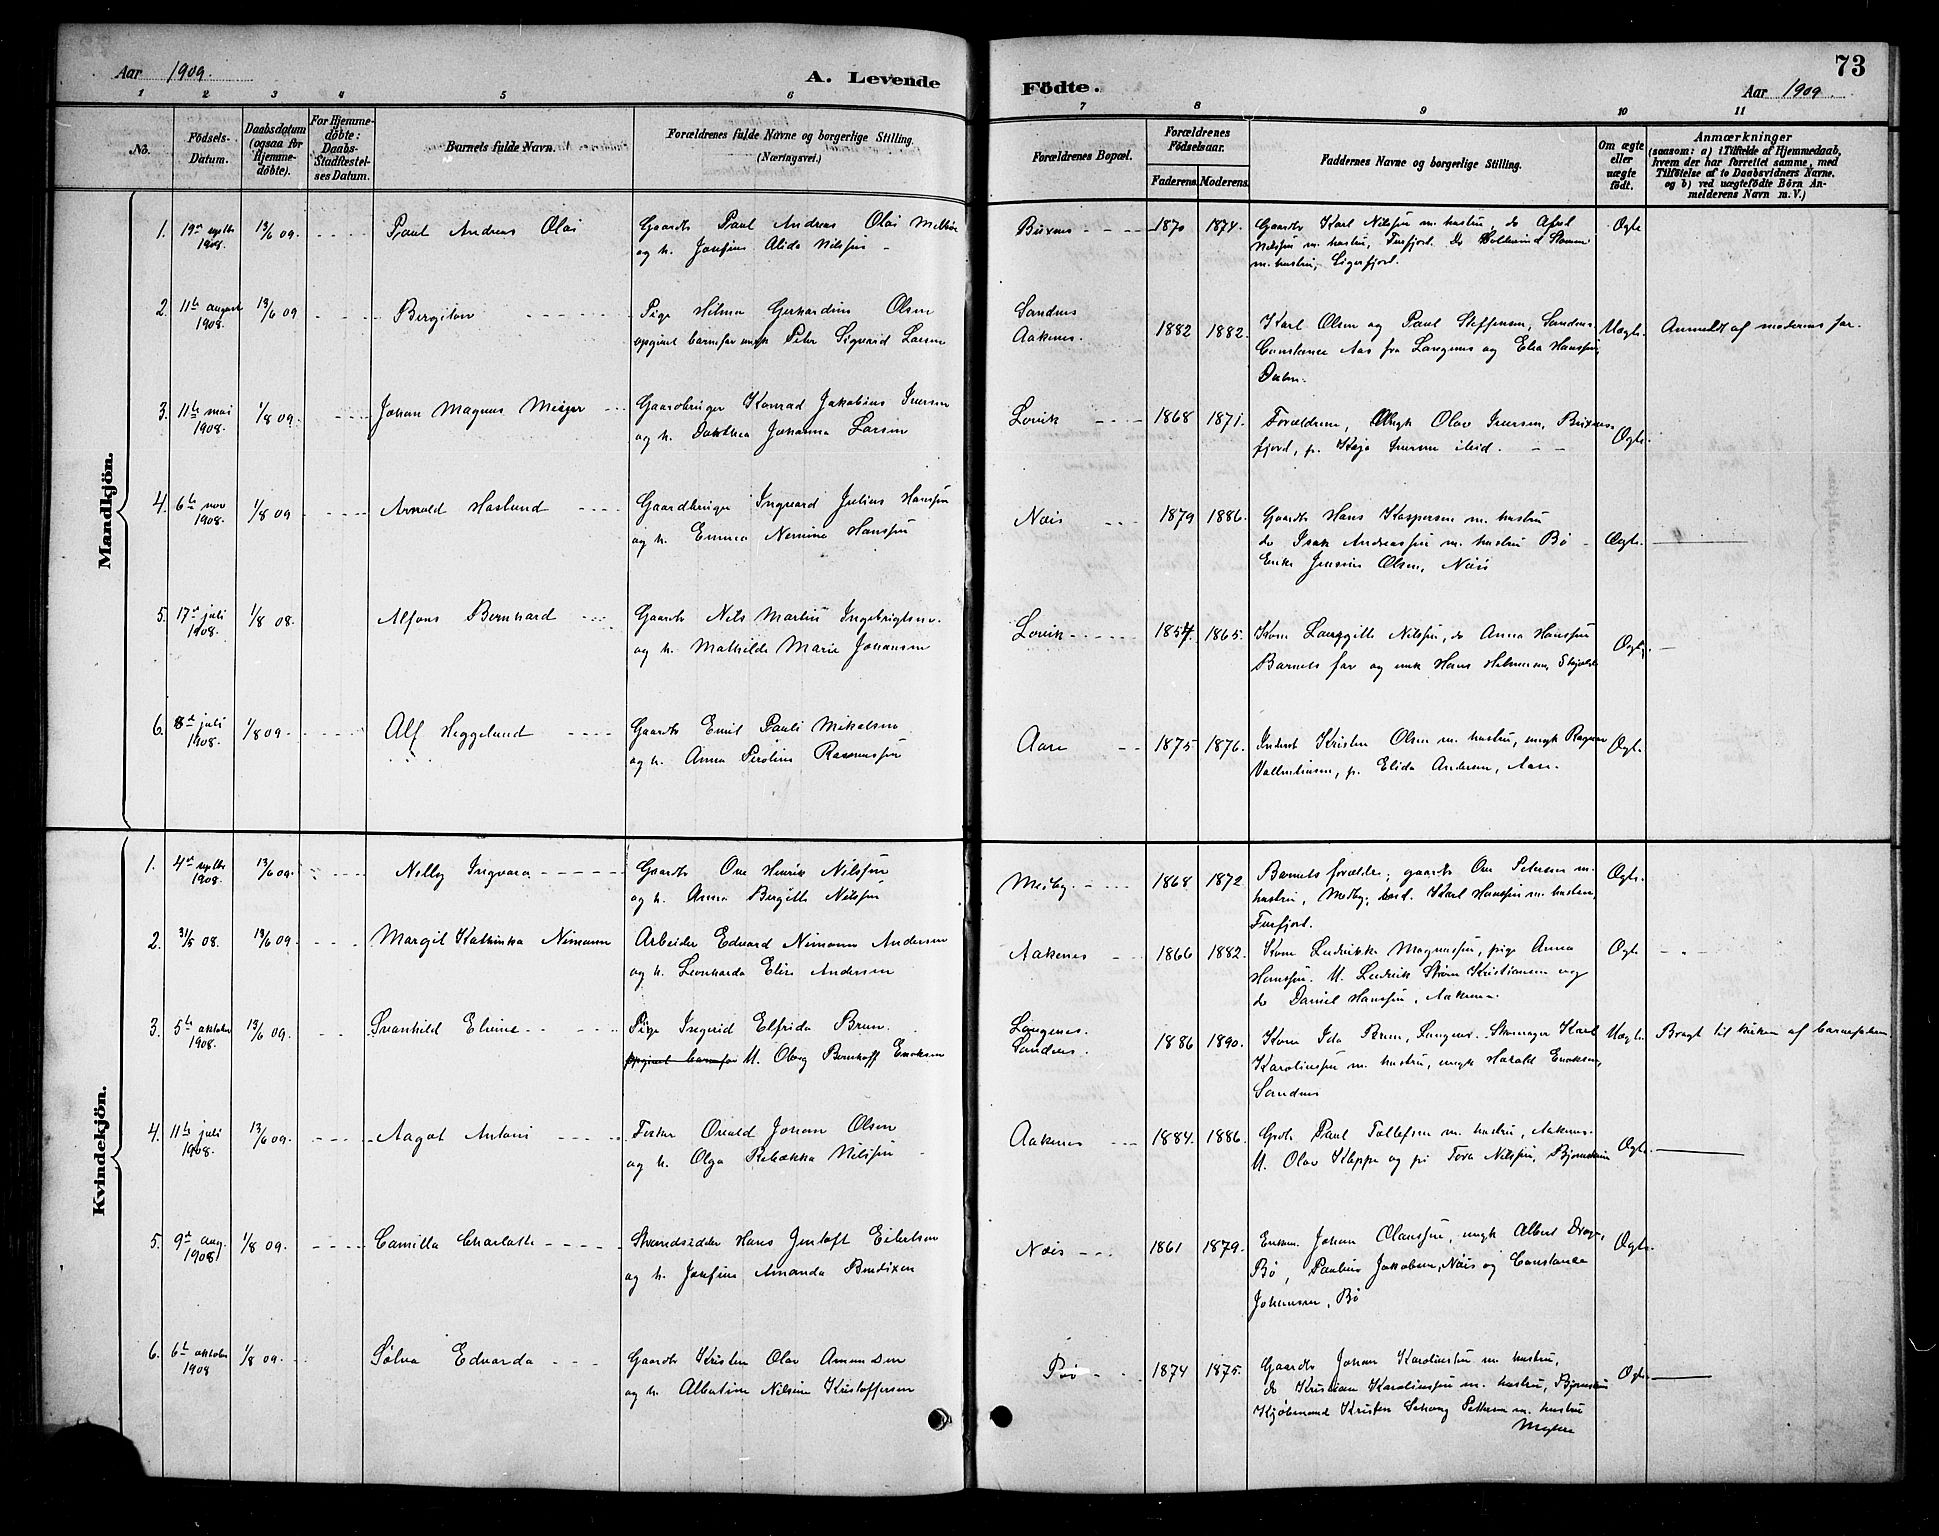 Aar 1909.
A. Levende
Födte.
73
Aar 1909
1 2 3 4 5 6 7 8 9 10 11
No.
Födsels-Datum.
Daabsdatum (ogsaa for Hjemme-døbte).
For Hjemme-døbte: Daabs-Stadfæstel-ses Datum.
Barnets fulde Navn.
Forældrenes fulde Navne og borgerlige Stilling. (Næringsvei.)
Forældrenes Bopæl.
Forældrenes Födselsaar.
Faderens. Moderens.
Faddernes Navne og borgerlige Stilling.
Om ægte eller uægte født.
Anmærkninger (saasom: a) i Tilfælde af Hjemmedaab, hvem der har forrettet samme, med Tilföielse af to Daabsvidners Navne, og b) ved uægtefödte Börn Anmelderens Navn m. V.)
Mandkjön.
1. 19de septbr 1908. 13/6 09 Paul Andreas Olai Gaardb Paul Andreas Olai
og h. Josefine Alida Nilssen
Buxnes 1870 1874. Gaardb Karl Nilssen m. hustru, do
Nilssen m. hustru, Forfjord. Do
m. hustru, Sigerfjord. Ægte
2. 11te august 1908. 13/6 09 Bergiton Pige Hilma Gerhardine Olsen
opgivet barnefar ungk Peter Sigvard Larsen
Sandnes
Aakenes. 1882 1882. Karl Olsen og Paul Steffensen, Sandnes
Constance Aas fra Langnes og Elea Hanssen,
Uægte. Anmeldt af moderens far.
3. 11te mai 1908. 1/8 09. Johan Magnus Meiger Gaardbruger Konrad Jakobius Iversen
og h. Dorthea Johanna Larsen
Lovik 1868 1871. Forældrene, Ungk Olav Iversen, Buxnes-
fjord, p. Kaja Iversen ibid. Ægte.
4. 6te nov 1908. 1/8 09 Arnold Haslund Gaardbruger Ingvard Julius Hanssen
og h. Emma Nermine Hanssen
Nøis 1879 1886. Gaardb Hans Kaspersen m. hustru
do Isak Andreassen m. hustru Bø
Enke Jensine Olsen, Nøis Ægte.
5. 17de juli 1908. 1/8 08. Alfons Bernhard Gaardb Nils Martin Ingebrigtsen.
og h. Mathilde Marie Johansen
Lovik 1857. 1865. Kone Nilssen, do Anna Hanssen
Barnets far og ungk Hans Helmersen, Ægte,
6. 8de juli 1908. 1/8 09 Alf Heggelund Gaardb Emil Pauli Mikalsen
og h. Anna Peroline Rasmussen
Aase 1875 1876. Inderst Kristen Olsen m. hustru, ungk Ragnar
p. Elida Andersen, Aase. Ægte.
Kvindekjön.
1. 4de septbr 1908. 13/6 09. Nelly Ingvara Gaardb Ove Henrik Nilssen
og h. Anna Bergitte Nilssen
Medby. 1868 1872 Barnets forældre, gaardb Ove Petersen m.
hustru, Medby, Karl Hanssen m. hustru
Forfjord. Ægte.
2. 31/5 08. 13/6 09. Margit Kathinka Nimann Arbeider Edvard Nimann Andersen
og h. Leonharda Elise Andersen
Aakenes 1866 1882. Kone Ludvikke Magnussen, pige Anna
Hanssen. U. Ludvik Strøm Kristiansen og
do Daniel Hanssen, Aakenes. Ægte
3. 5te oktober 1908. 13/6 09. Svanhild Elvine Pige Ingerid Elfrida Brun.
opgivet barnefar U. Oberg Bernhoff Enoksen
Langenes
Sandnes. 1886 1890. Kone Ida Brun, Langnes. Skomager Karl
Karolinssen m. hustru, ungk Harald Enoksen,
Sandnes Uægte. Bragt til kirken af barnefaren
4. 11te juli 1908. 13/6 09. Aagot Antoni Fisker Osvald Johan Olsen
og h. Olga Rebækka Nilssen
Aakenes 1884. 1886. Grdb Paul Tollefsen m. hustru, Aakenes.
U. Olav Kleppe og pi Tora Nilssen, Ægte.
5. 9de aug. 1908 1/8 09. Camilla Charlotte Strandsidder Hans Gustoft Eilertsen
og h. Josefine Amanda Bendixen
Nøis 1861 1879. Johan Olaussen, ungk Albert
Bø, Pauline Jakobsen, Nøis og Constance
Johansen, Bø Ægte.
6. 6te oktober 1908 1/8 09. Sølva Edvarda Gaardb Kristen Olav Amundsen
og h. Albertine Nilsine Kristoffersen
1874 1875. Gaardb Johan Karolinssen m. hustru,
do Kristian Karolinssen m. hustru,
Kjøbmand Kristen Schong Pettersen m. hustru
Ægte.